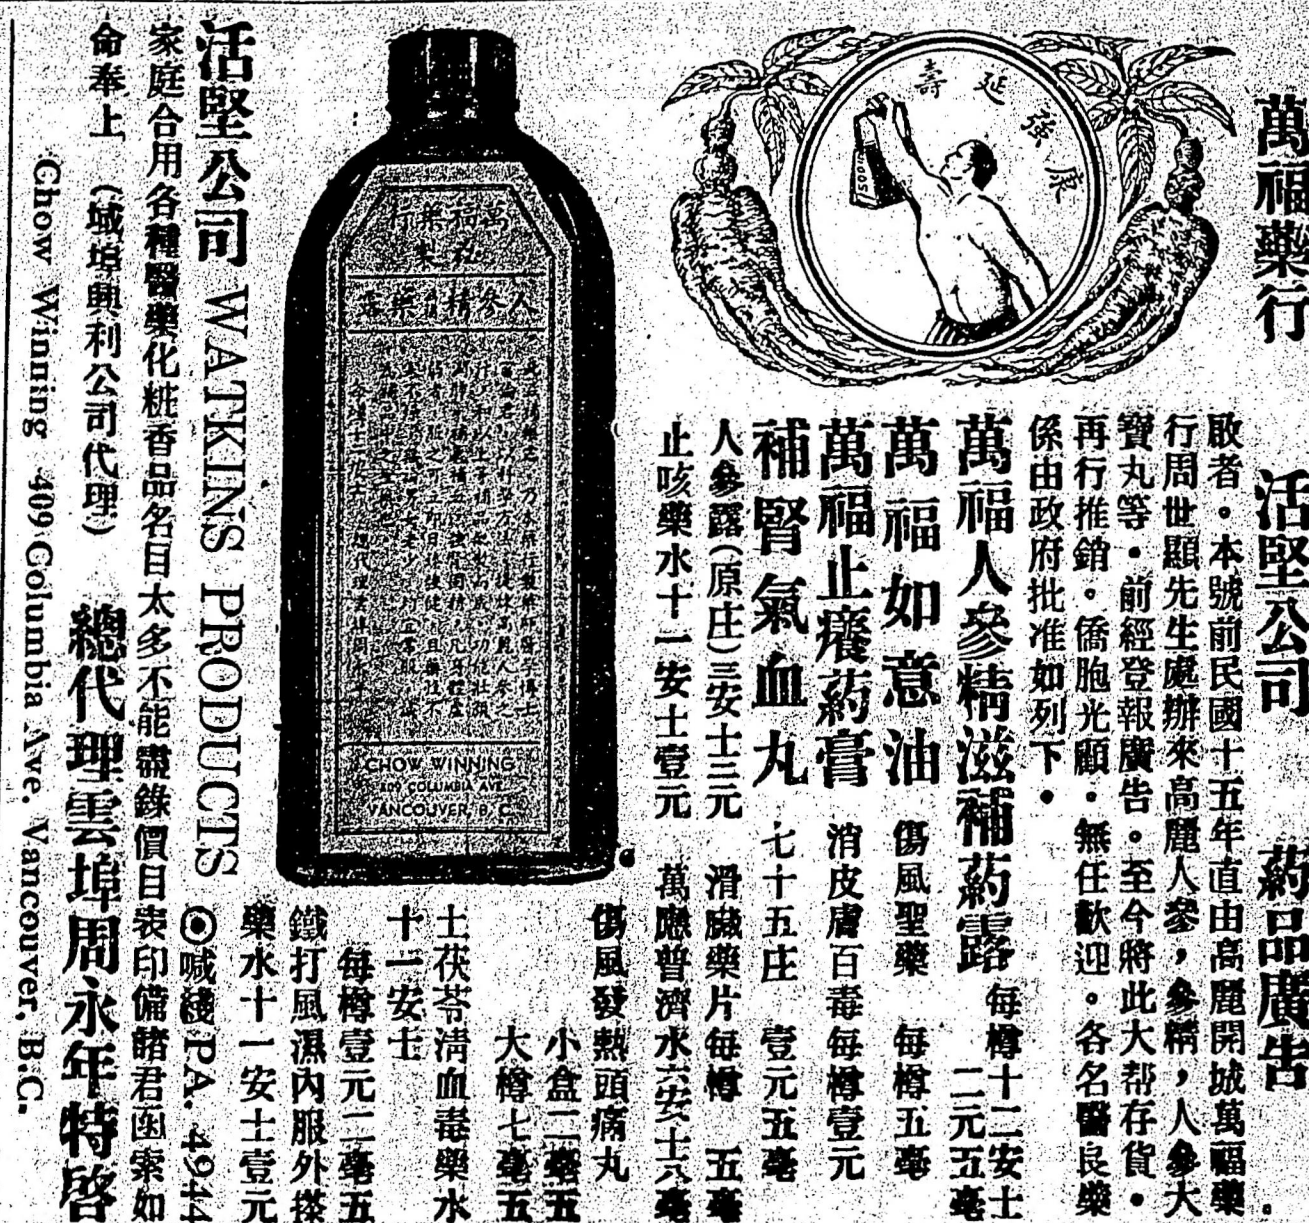 萬福藥行 活堅公司 药品廣告
敬者。本號前民國十五年直由高麗開城萬福藥
行周世顯先生處辦來高麗人參，參精，人參大
寶丸等。前經登報廣告。至今將此大帮存貨。
再行推銷。僑胞光顧。無任歡迎。各名醫良藥
係由政府批准如列下。
康強延壽
萬福人參精滋補药露 每樽十二安士 二元五毫
萬福如意油 傷風聖藥 每樽五毫
萬福止癢葯膏 消皮膚百毒每樽壹元
補腎氣血丸 七十五庄 壹元五毫
人參露(原庄)三安士三元 滑臟藥片每樽 五毫
止咳藥水十一安士壹元 萬應普濟水六安士八毫
傷風發熱頭痛丸
小盒二毫五
大樽七毫五
土茯苓清血毒藥水
十一安士
每樽壹元二毫五
鐵打風濕內服外搽
藥水十一安士壹元
萬福藥行
製
人參精藥露
CHOW WINNING
409 COLUMBIA AVE.
VANCOUVER, B. C.
活堅公司 WATKINS PRODUCTS ◎喊綫PA. 4944
家庭合用各種醫藥化粧香品名目太多不能盡錄價目表印備諸君函索如
命奉上 (域埠興利公司代理) 總代理雲埠周永年特啓
Chow Winning 409 Columbia Ave. Vancouver. B.C.